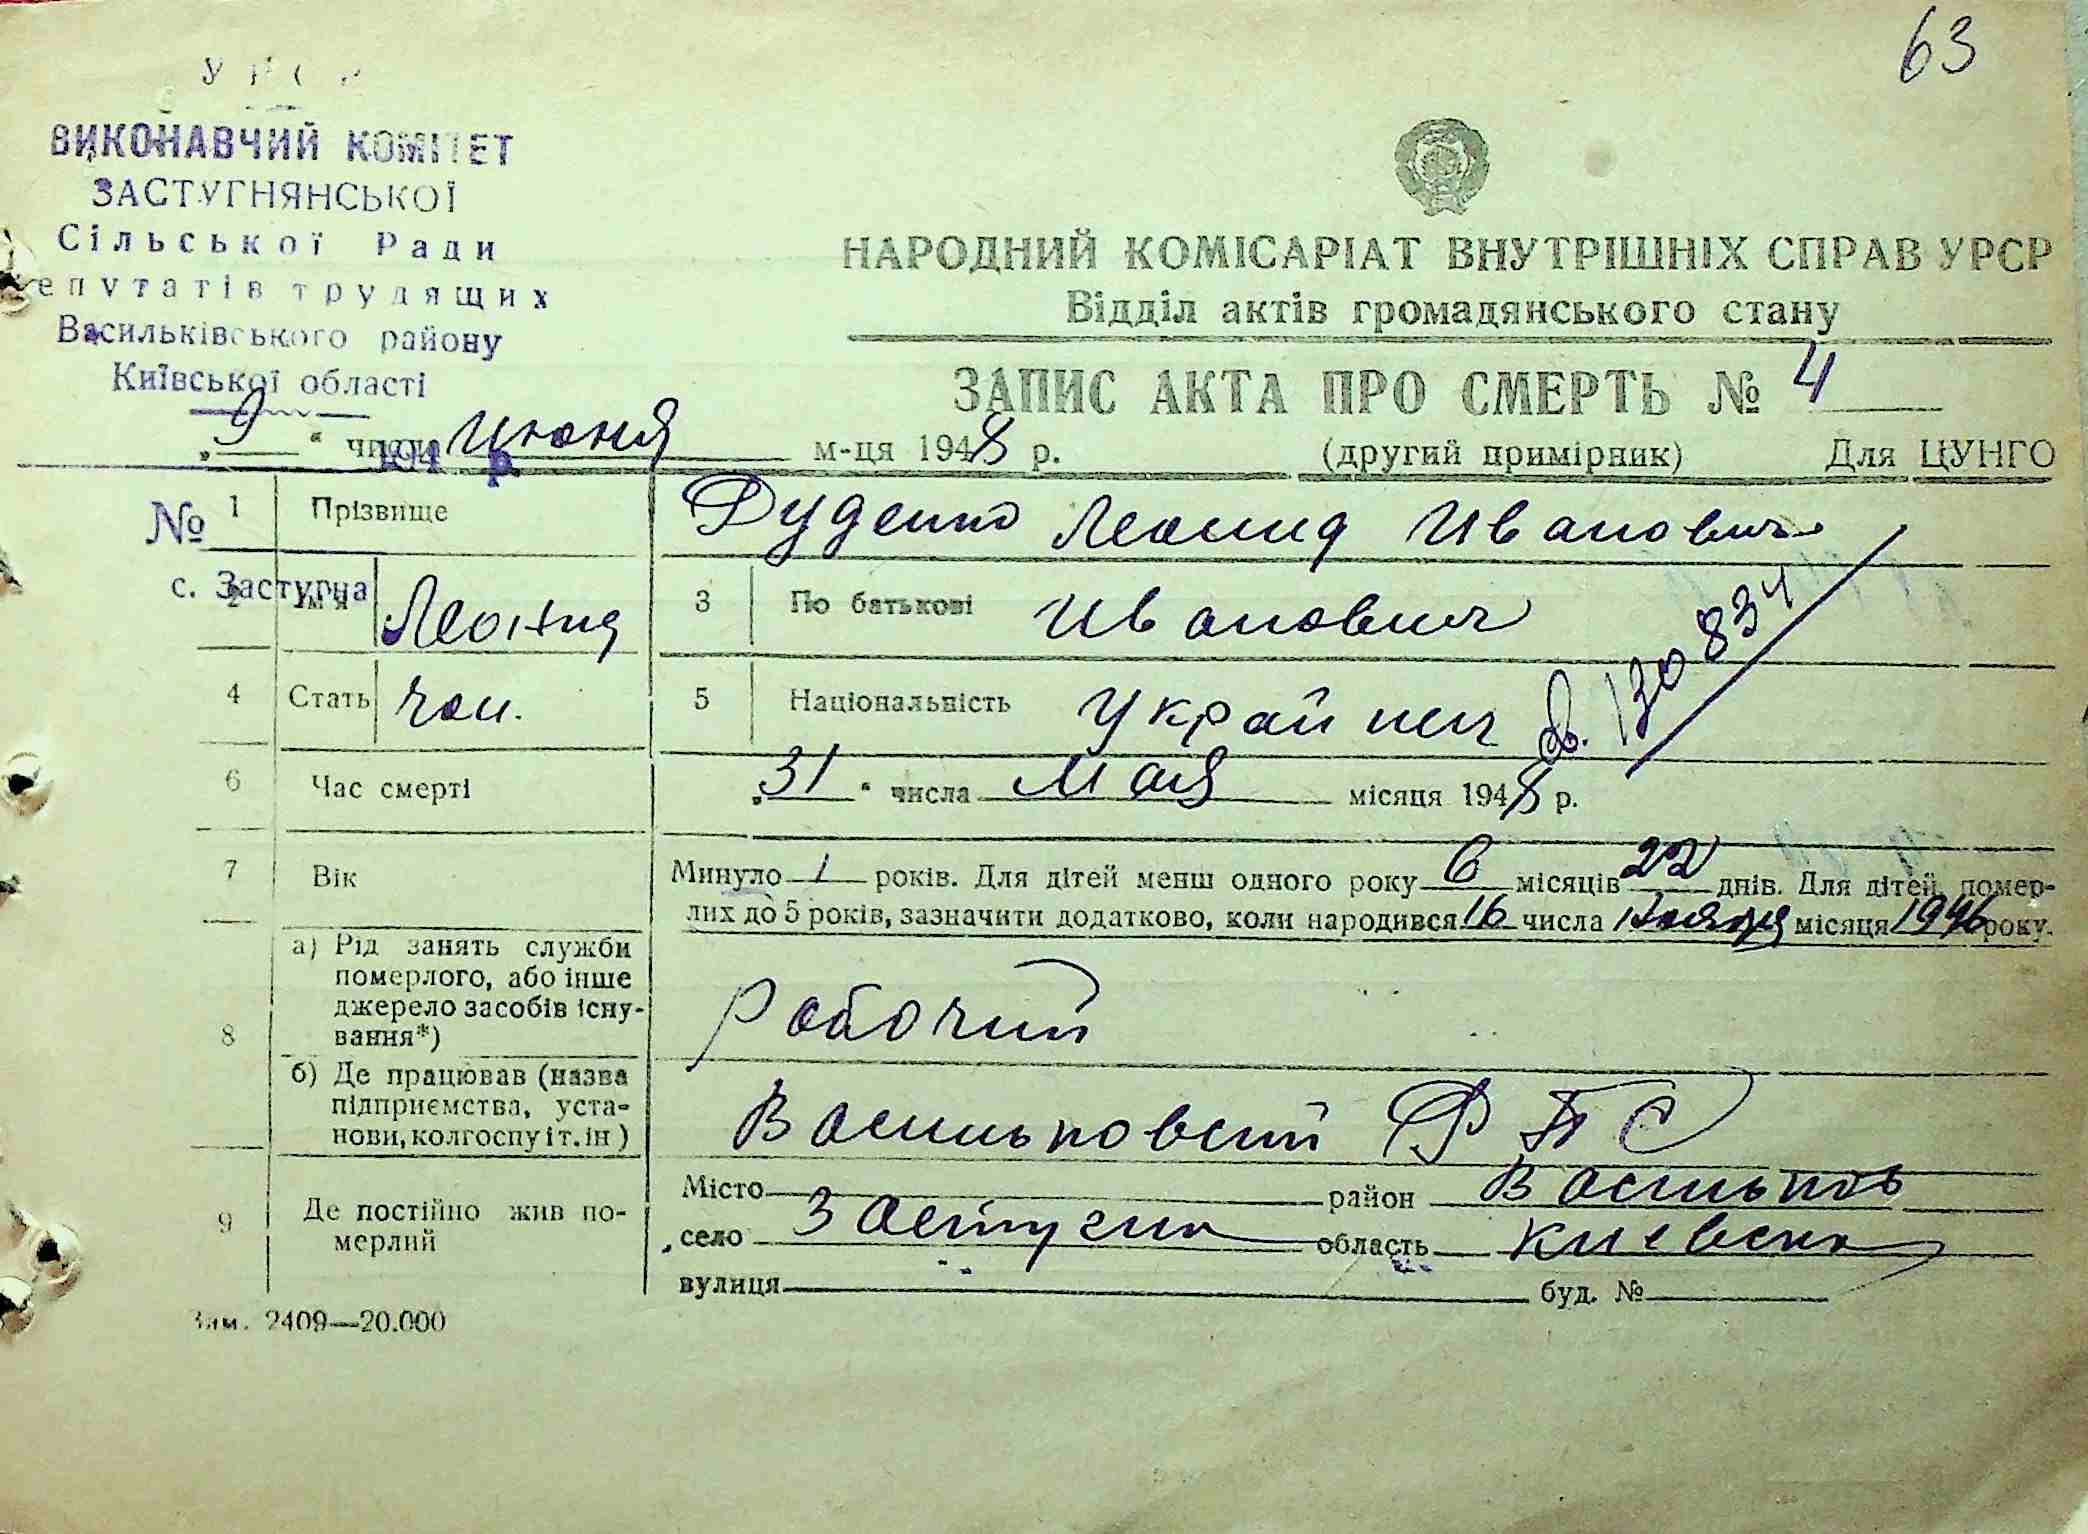 63
УРСР
ВИКОНАВЧИЙ КОМІТЕТ
ЗАСТУГНЯНСЬКОЇ
Сільської Ради
епутатів трудящих
Васильківського району
Київської області
194 р.
№
с. Застугна
НАРОДНИЙ КОМІСАРІАТ ВНУТРІШНІХ СПРАВ УРСР
Відділ актів громадянського стану
ЗАПИС АКТА ПРО СМЕРТЬ № 4
„9“ числа июня м-ця 1948 р. (другий примірник) Для ЦУНГО
1 Прізвище Руденко Леонид Иванович
2 Ім'я Леонид 3 По батькові Иванович
4 Стать чол. 5 Національність Украйнец
св. 130834
6 Час смерті „31“ числа Мая місяця 1948 р.
7 Вік Минуло 1 років. Для дітей менш одного року 6 місяців 22 днів. Для дітей, помер-
лих до 5 років, зазначити додатково, коли народився 16 числа місяця 1946 року.
8 а) Рід занять служби
померлого, або інше
джерело засобів існу-
вання*)
Рабочий
б) Де працював (назва
підприємства, уста-
нови, колгоспу і т. ін)
Васильковский РТС
9 Де постійно жив по-
мерлий
Місто район Васильков
село Застугна область Киевска
вулиця буд. №
Зам. 2409—20.000